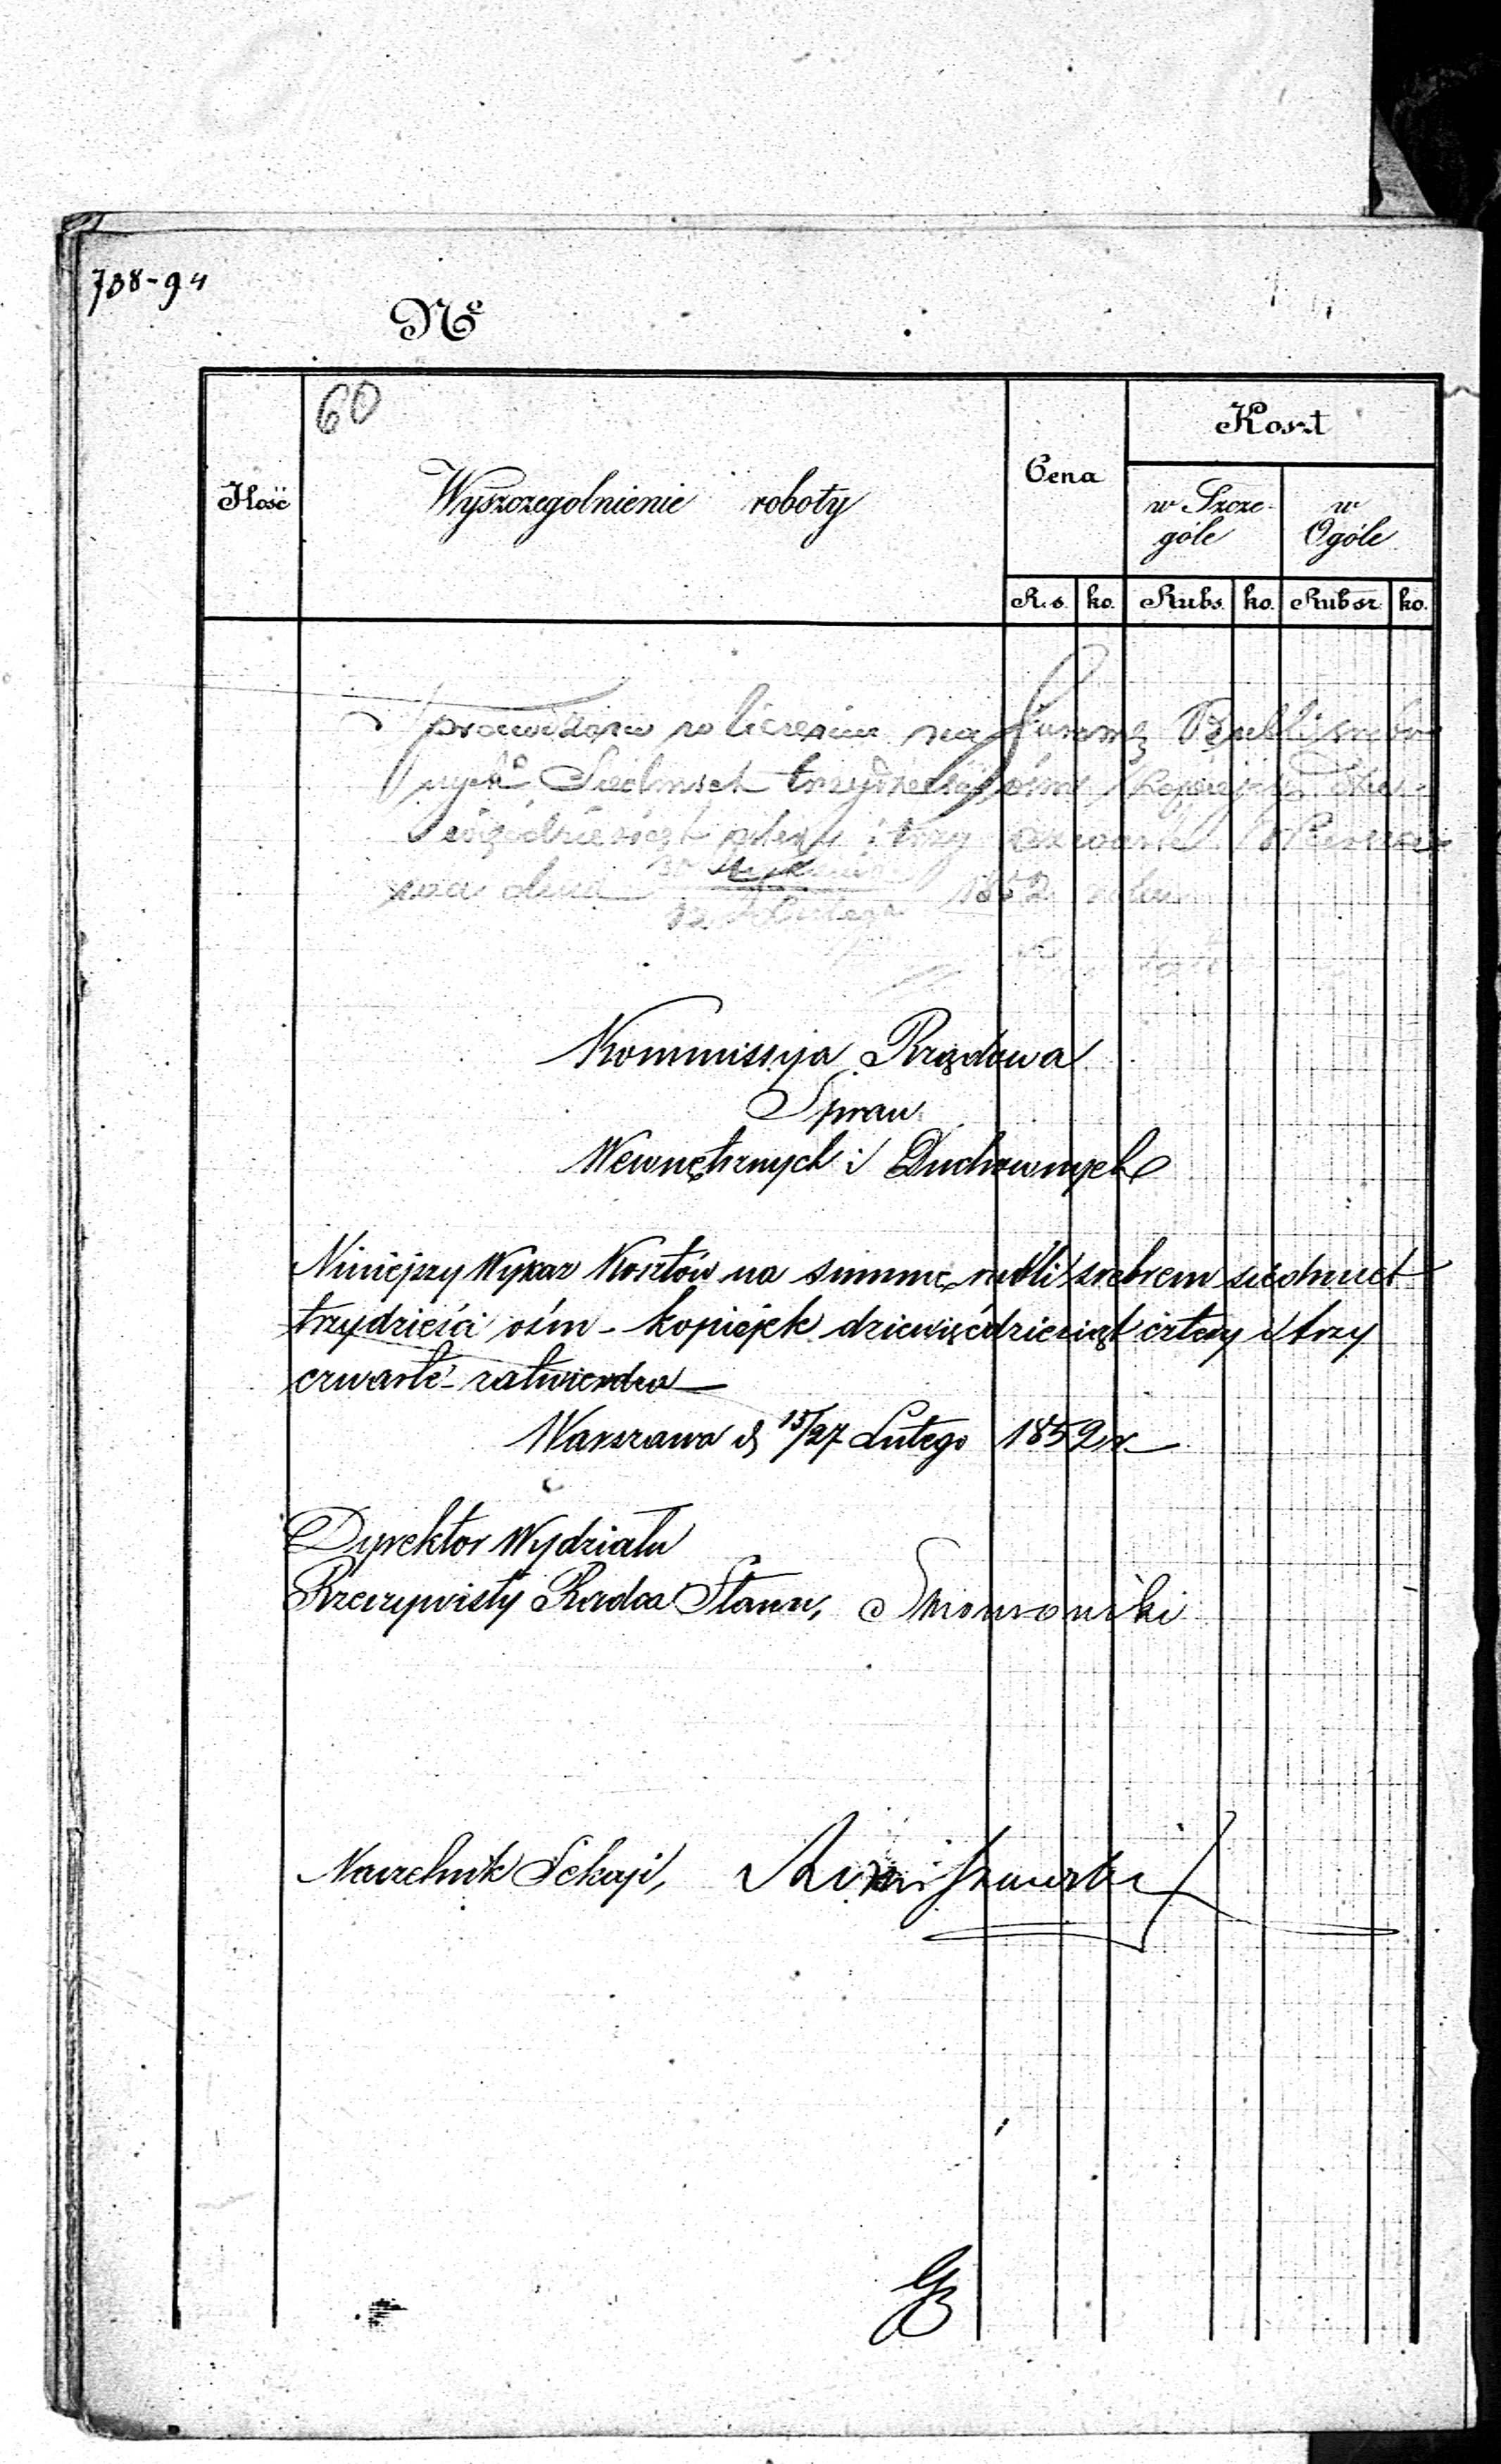 738-94
№
60
Ilość
Wyszczegolnienie roboty
Cena
Koszt
w Szcze-
góle
w
Ogóle
R.s. ko. Rubs. ko. Rubsr. ko.
Sprawdzono w liczeniu na Summę Rubli srebr
nych Siedmset trzydzieści ośm kopiejek dzie-
więćdziesiąt cztery i trzy czwarte. Warsza-
wa dnia 30 Stycznia 1852 roku
Lutego
Kommissyja Rządowa
Spraw
Wewnętrznych i Duchownych
Niniejszy Wykaz Kosztów na summę rubli srebrem siedmset
trzydzieści ośm - kopiejek dziewięćdziesiąt cztery i trzy
czwarte - zatwierdza
Warszawa d. 15/27 Lutego 1852 r.
Dyrektor Wydziału
Rzeczywisty Radca Stanu,
Naczelnik Sekcji,